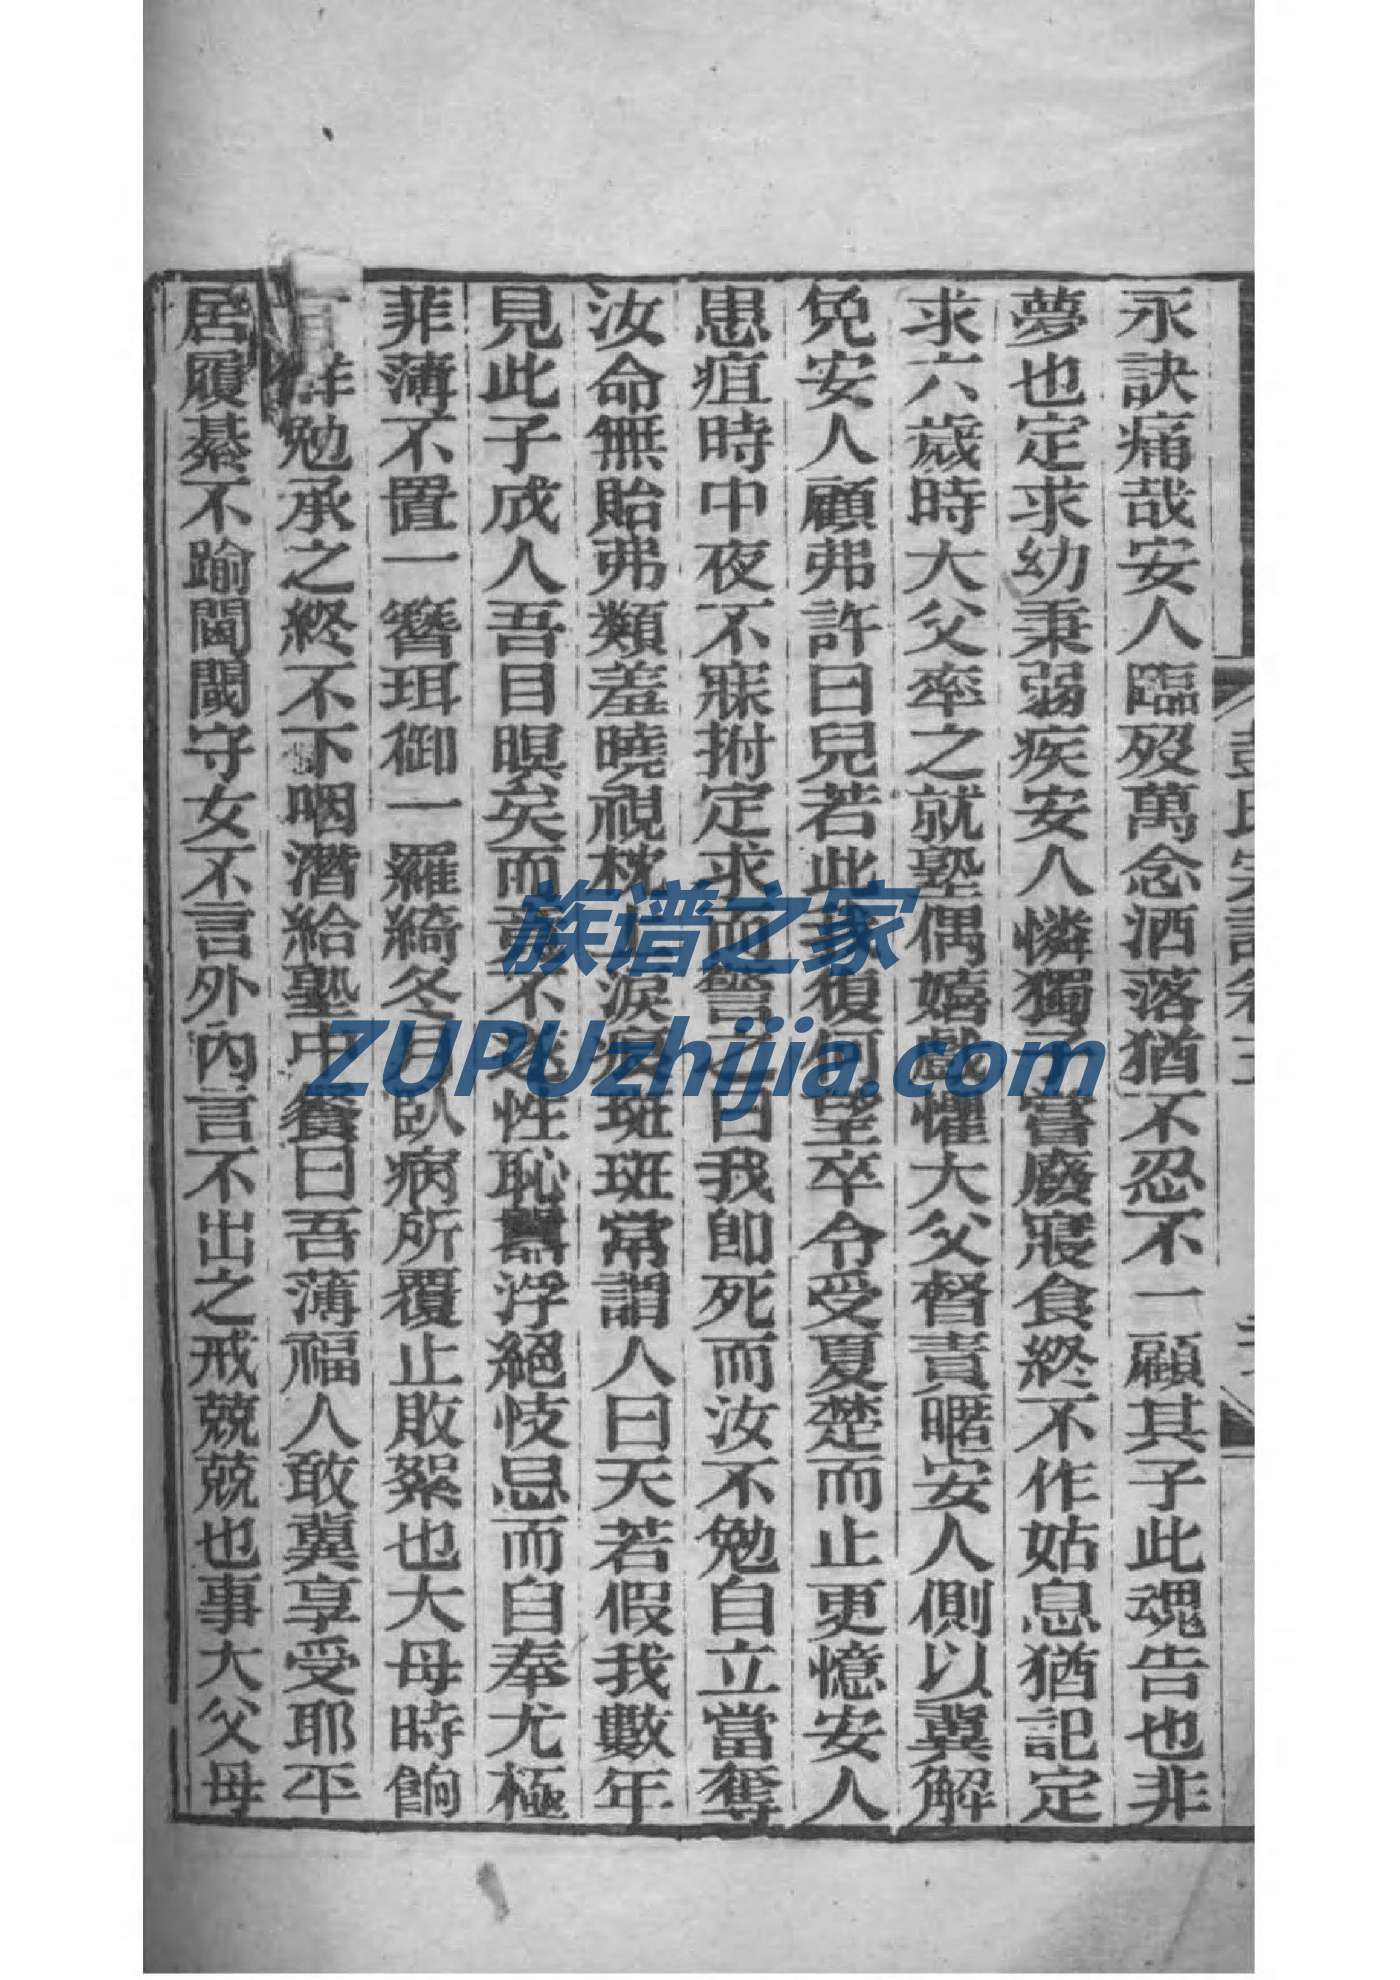 永訣痛哉安人臨歿萬念洒落猶不忍不一顧其子此魂告也非
夢也定求幼秉弱疾安人憐獨子嘗廢寢食終不作姑息猶記定
求六歲時大父率之就塾偶嬉戲懼大父督責暱安人側以冀解
免安人顧弗許曰兒若此我復何望卒令受夏楚而止更憶安人
患疽時中夜不寐拊定求而警之曰我即死而汝不勉自立當奪
汝命無貽弗類羞曉視枕上淚痕斑斑常謂人曰天若假我數年
見此子成人吾目瞑矣而竟不逮性恥囂浮絕忮忌而自奉尤極
菲薄不置一簪珥御一羅綺冬月臥病所覆止敗絮也大母時餉
勉承之終不下咽潛給塾中餐曰吾薄福人敢冀享受耶平
居履綦不踰閫閾守女不言外內言不出之戒兢兢也事大父母
彭氏宗譜卷三
族谱之家
ZUPUzhijia.com